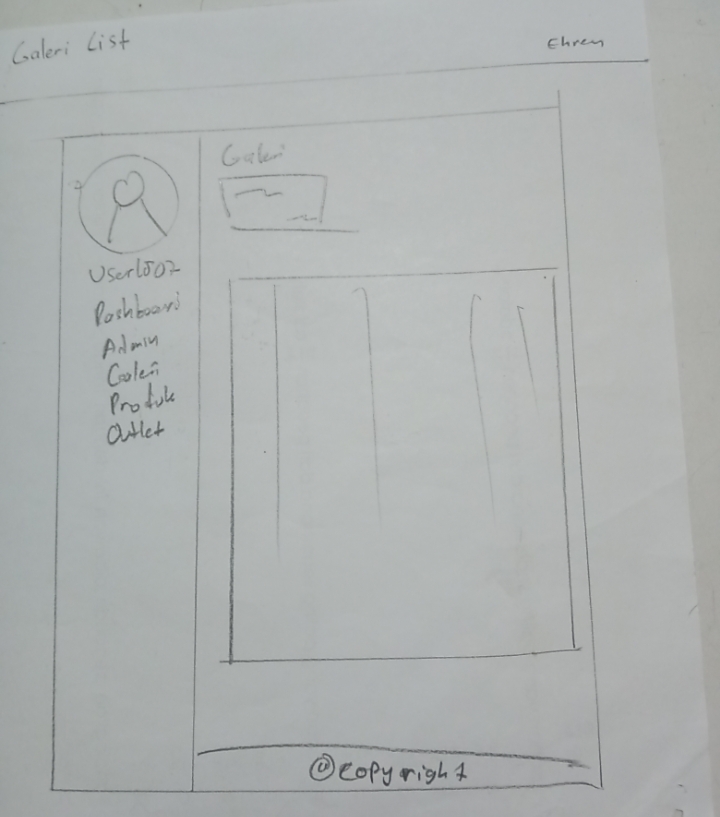 Galeri List
Ehren
Galeri
Dashboard
Admin
Galeri
Produk
Outlet
©copyright